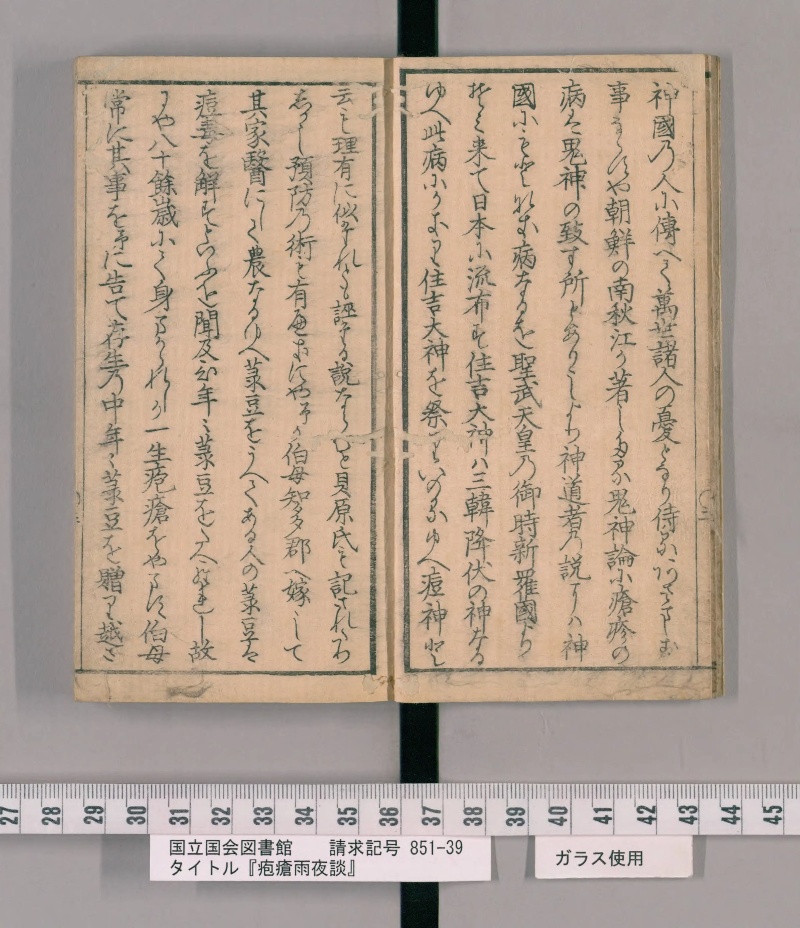 神國乃人小傳へて萬世諸人の憂となり侍る
事にや朝鮮の南秋江が著しゝ鬼神論に瘡疹の
病は鬼神の致す所とありしより神道者乃説には神
國にもと無き病なるを聖武天皇乃御時新羅國より
来て日本に流布す住吉大神ハ三韓降伏の神なる
ゆへ此病にかゝりては住吉大神を祭りていのるゆへ痘神と
云も理有に似たれとも誣たる説ならむと貝原氏も記されたり
預防乃術も有へき伯母智多郡へ嫁して
其家醫にして農なるゆへ菉豆をうへてある人の菉豆は
痘毒を解すといふを聞及ひ年々菉豆を故
にや八十餘歳にて身まかりしが一生疱瘡をやます伯母
常に其事を予に告て存生乃中年々菉豆を贈り越さ
27 28 29 30 31 32 33 34 35 36 37 38 39 40 41 42 43 44 45
国立国会図書館 請求記号 851-39
タイトル『疱瘡雨夜談』
ガラス使用